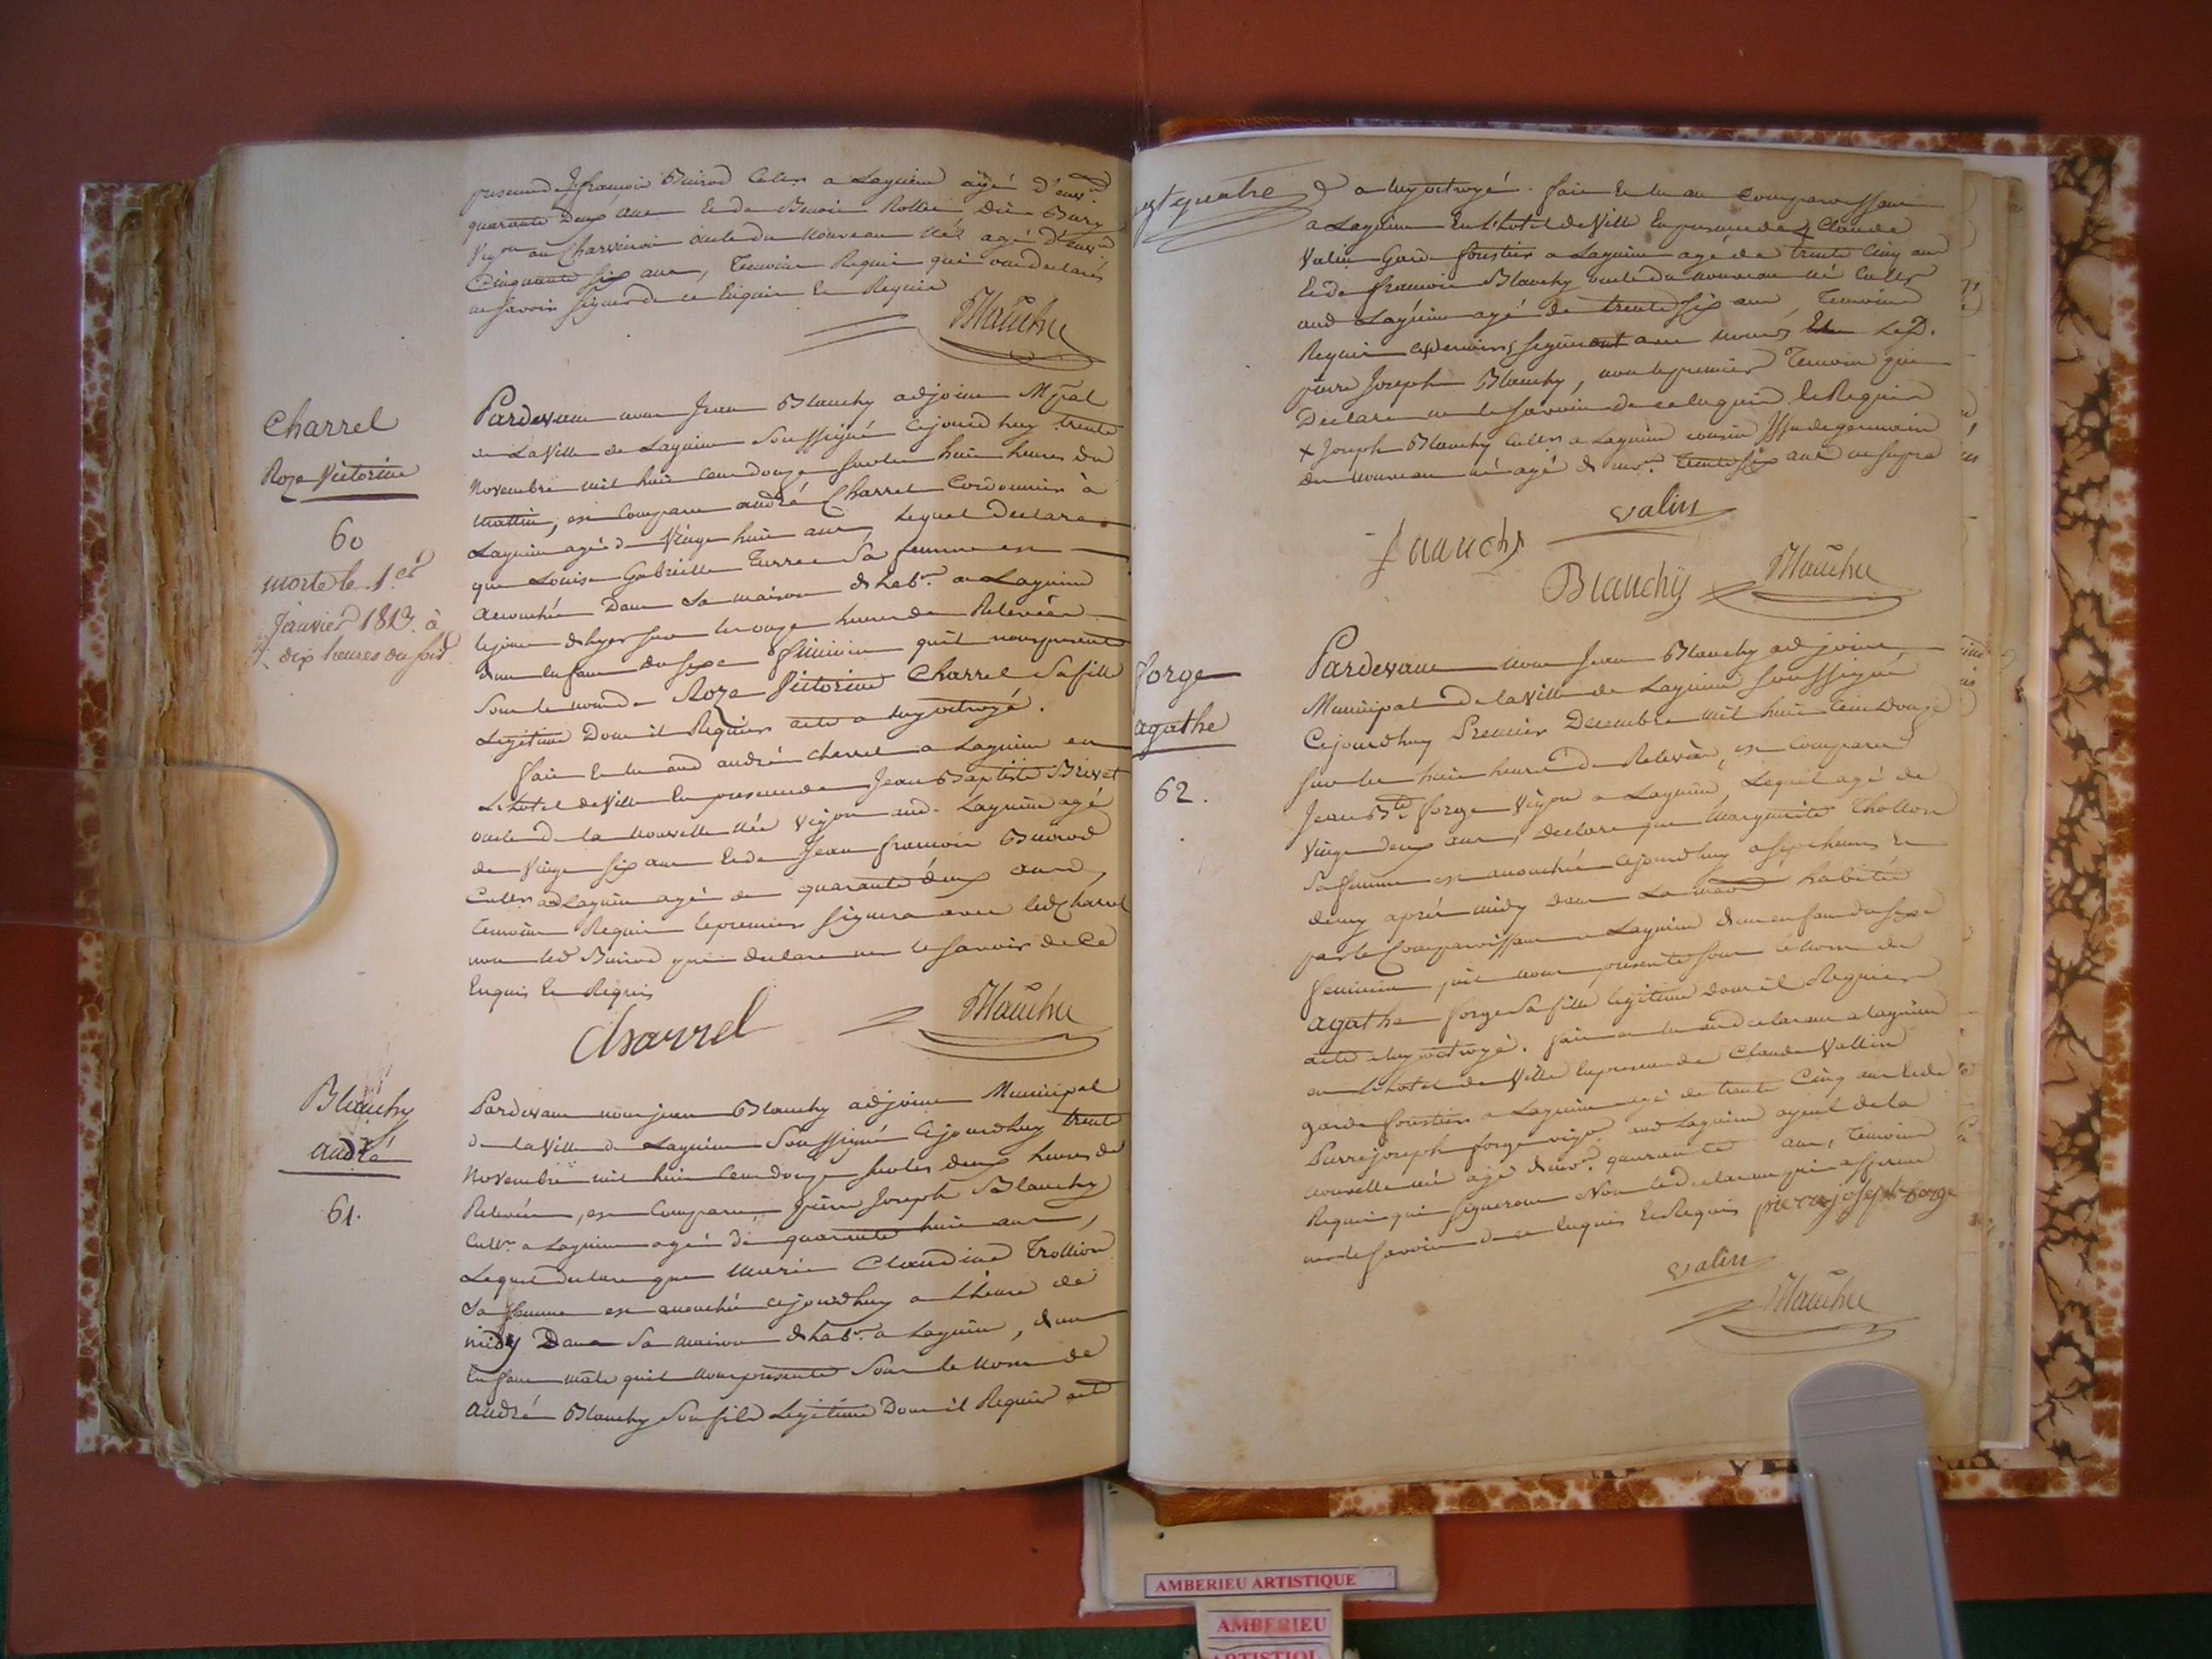 quarante Deux ans et de Benoit Rollin, dit Bury
Vig.on au Charvinai oncle du nouveau né agé d'envi.
Cinquante Six ans, Temoins Requis qui ont declarés
ne savoir signer de ce Enquis et Requis
Blanchy
Charrel
Roze Victorine
60
morte le 1.er
Janvier 1813. à
dix heures du soir.
Pardevant nous Jean Blanchy adjoint M.pal
de La Ville de Lagnieu Soussigné Cejourd'huy trente
Novembre mil huit cent douze sur les huit heures du
mattin, est Comparu andré Charrel Cordonnier à
Lagnieu agé de Vingt huit ans, Lequel Declare
que Louise Gabrielle Turrel Sa femme est
accouchée Dans Sa maison d'hab.on a Lagnieu
le jour d'hyer sur les onze heures de Relevée
d'un Enfant du Sexe féminin qu'il nous presente
Sous le nom de Roze Victorine Charrel Sa fille
Legitime Dont il Requier acte a luy octroyé.
fait et lu aud andré charrel a Lagnieu en
L'hotel de Ville En presence de Jean Baptiste Brivet
oncle de la nouvelle née vigon aud. Lagnieu agé
de Vingt Six ans et de Jean francois Buirod
Cult.r aud Lagnieu agé de quarante deux ans,
Temoins Requis le premier Signera avec led Charrel
non led Buirod qui declare ne le Savoir de Ce
Enquis et Requis
Charrel
Blanchy
Blanchy
andré
61.
Pardevant nous jean Blanchy adjoint Municipal
de la Ville de Lagnieu Soussigné Cejourd'huy trente
Novembre mil huit Cent douze sur les deux heures de
Relevée, est Comparu pierre Joseph Blanchy
Cult.r a Lagnieu agé de quarante huit ans,
Lequel declare que Marie Claudine Trollion
Sa femme est accouchée cejourd'huy a l'heure de
midy Dans Sa maison d'hab.on a Lagnieu, d'un
Enfant mâle qu'il nous presente Sous le nom de
andré Blanchy Son fils Legitime Dont il Requier acte
a luy octroyé. fait et lu au Comparoissant
a Lagnieu En L'hotel de Ville En presence de Claude
Valin Garde forestier a Lagnieu agé de trente Cinq ans
et de francois Blanchy oncle du nouveau né Cult.r
aud Lagnieu agé de trente Six ans, Temoins
Requis signeront avec nous Le D.
pierre Joseph Blanchy, non le premier Temoin qui
Declare ne le savoir de ce Enquis et Requis
+ Joseph Blanchy Cult.r a Lagnieu cousin Issu de germain
du nouveau né agé d'env.on trente Six ans
valin
Blanchy
Blanchy
forge
agathe
62.
Pardevant nous Jean Blanchy adjoint
Municipal de la Ville de Lagnieu Soussigné
Cejourd'huy Premier Decembre mil huit Cent Douze
sur les huit heures de Relevée, est Comparu
Jean B.te forge Vigon a Lagnieu, Lequel agé de
Vingt deux ans, declare que Marguerite Thollon
Sa femme est accouchée cejourd'huy a sept heures et
demy après midy dans La maison habitée
par le Comparoissant a Lagnieu d'un enfant du Sexe
feminin qu'il nous presente sous le nom de
agathe forge Sa fille legitime dont il Requier
acte a luy octroyé. fait et lu aud declarant a Lagnieu
en L'hotel de Ville En presence de Claude Vallin
garde forestier a Lagnieu agé de trente Cinq ans et de
Pierre joseph forge vigon aud Lagnieu ayeul de la
nouvelle née agé d'env.on quarante ans, Temoins
Requis qui signeront Non led declarant qui affirme
ne le savoir de ce Enquis et Requis pierre joseph forge
valin
Blanchy
AMBERIEU ARTISTIQUE
AMBERIEU